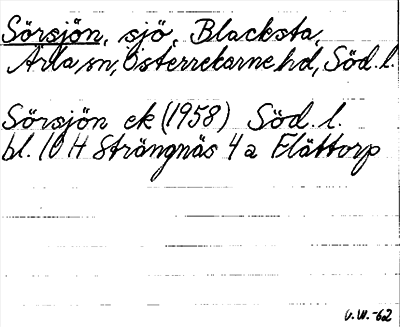 Sörsjön, sjö, Blacksta,
Ärla sn, Österrekarne hd, Söd. l.
Sörsjön ek (1958) Söd. l.
bl. 10 H Strängnäs 4 a Flättorp
V.W.-62